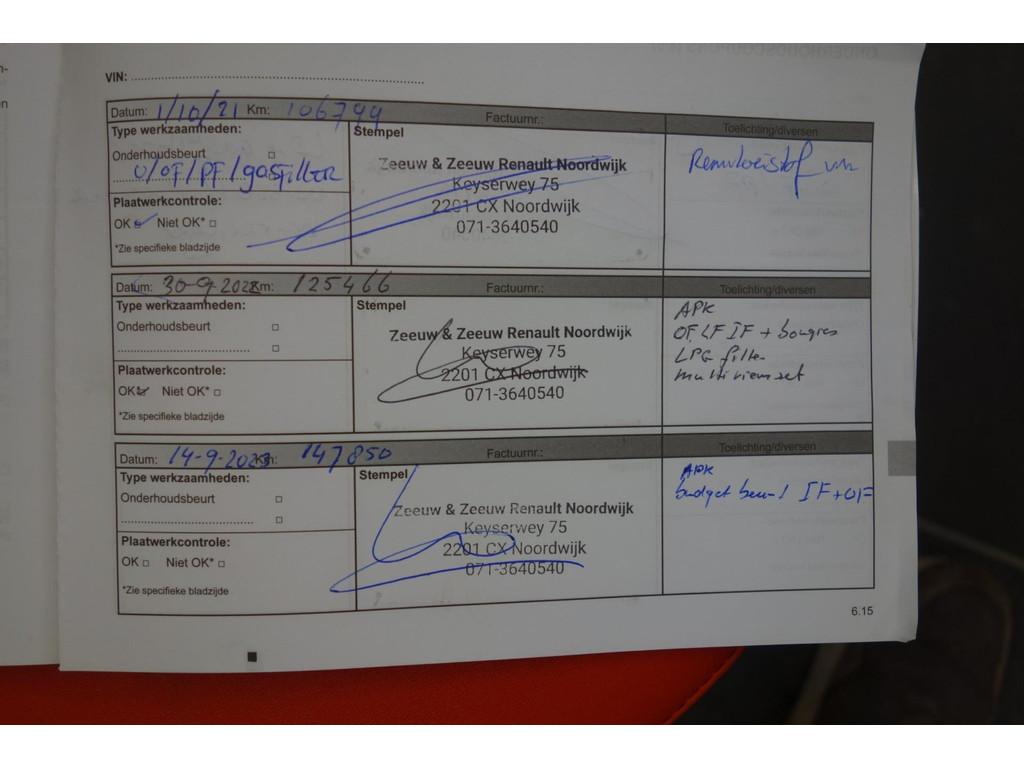 VIN:
Datum: 1/10/21 Km: 106799 Factuurnr.: Toelichting/diversen
Type werkzaamheden: Stempel
Onderhoudsbeurt
O/OF/PF/gasfilter
Remvloeistof
Zeeuw & Zeeuw Renault Noordwijk
Keyserwey 75
2201 CX Noordwijk
071-3640540
Plaatwerkcontrole:
OK Niet OK*
*Zie specifieke bladzijde
Datum: 30-9-2022 Km: 125466 Factuurnr.: Toelichting/diversen
Type werkzaamheden: Stempel
Onderhoudsbeurt
Zeeuw & Zeeuw Renault Noordwijk
Keyserwey 75
2201 CX Noordwijk
071-3640540
APK
OF LF IF + bougies
LPG filter
multiriemset
Plaatwerkcontrole:
OK Niet OK*
*Zie specifieke bladzijde
Datum: 14-9-2023 Km: 147850 Factuurnr.: Toelichting/diversen
Type werkzaamheden: Stempel
Onderhoudsbeurt
Zeeuw & Zeeuw Renault Noordwijk
Keyserwey 75
2201 CX Noordwijk
071-3640540
APK
budget beurt IF + OF
Plaatwerkcontrole:
OK Niet OK*
*Zie specifieke bladzijde
6.15